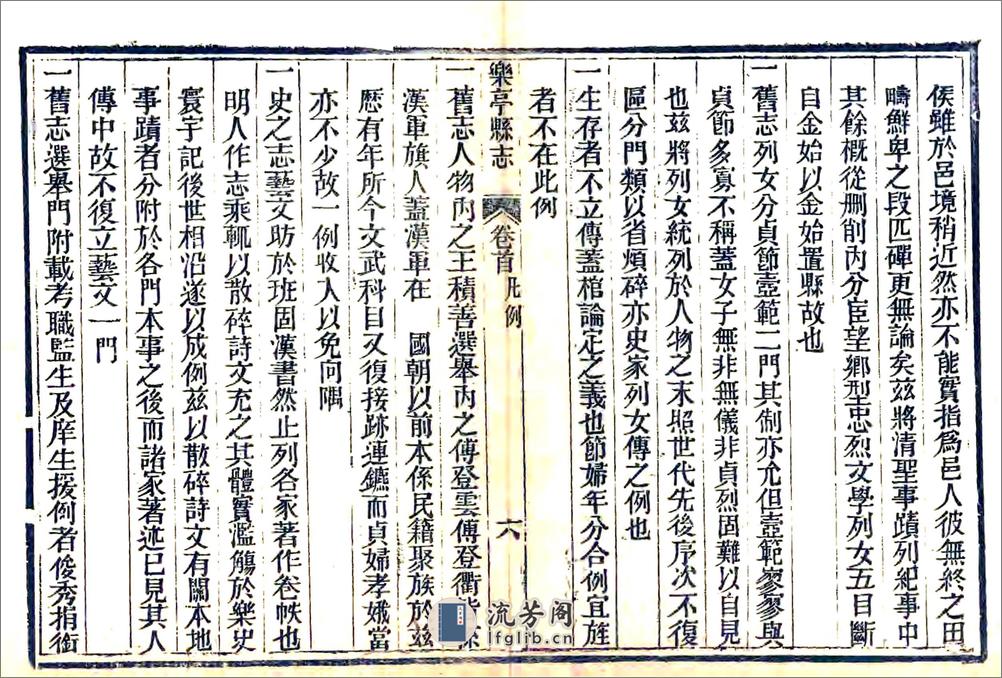 侯雖於邑境稍近然亦不能實指爲邑人彼無終之田
疇鮮卑之段匹磾更無論矣茲將清聖事蹟列紀事中
其餘概從刪削內分宦望鄉型忠烈文學列女五目斷
自金始以金始置縣故也
一舊志列女分貞節壼範二門其制亦允但壼範寥寥與
貞節多寡不稱蓋女子無非無儀非貞烈固難以自見
也茲將列女統列於人物之末照世代先後序次不復
區分門類以省煩碎亦史家列女傳之例也
一生存者不立傳蓋棺論定之義也節婦年分合例宜旌
者不在此例
樂亭縣志 卷首 凡例 六
一舊志人物內之王積善選舉內之傅登雲傅登衢皆係
漢軍旗人蓋漢軍在 國朝以前本係民籍聚族於茲
歷有年所今文武科目又復接跡連鑣而貞婦孝媙當
亦不少故一例收入以免向隅
一史之志藝文昉於班固漢書然止列各家著作卷帙也
明人作志乘輒以散碎詩文充之其體實濫觴於樂史
寰宇記後世相沿遂以成例茲以散碎詩文有關本地
事蹟者分附於各門本事之後而諸家著述已見其人
傳中故不復立藝文一門
一舊志選舉門附載考職監生及庠生援例者俊秀捐銜
流芳阁
lfglib.cn